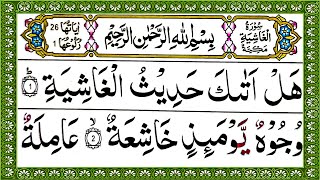 سُوْرَةُ الْغَاشِيَةِ مَكِّيَّةٌ
بِسْمِ اللهِ الرَّحْمٰنِ الرَّحِيْمِ
اٰيَاتُهَا 26
رُكُوْعُهَا 1
هَلْ اَتٰىكَ حَدِيْثُ الْغَاشِيَةِ ۝١
وُجُوْهٌ يَّوْمَئِذٍ خَاشِعَةٌ ۝٢ عَامِلَةٌ